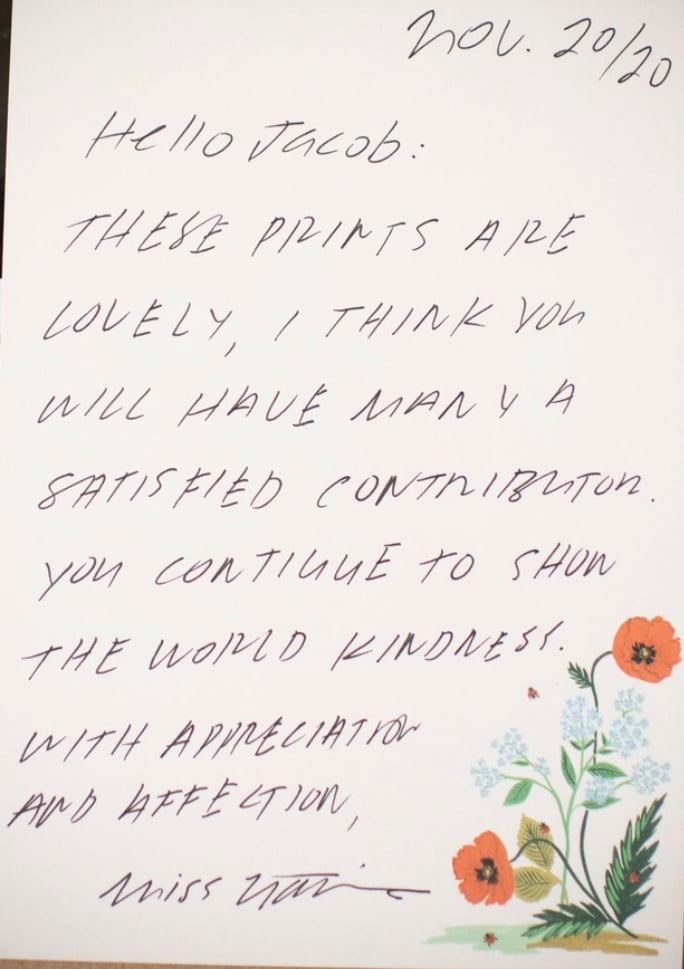 Nov. 20/20
Hello Jacob:
THESE PRINTS ARE
LOVELY, I THINK YOU
WILL HAVE MANY A
SATISFIED CONTRIBUTOR.
YOU CONTINUE TO SHOW
THE WORLD KINDNESS.
WITH APPRECIATION
AND AFFECTION,
Miss